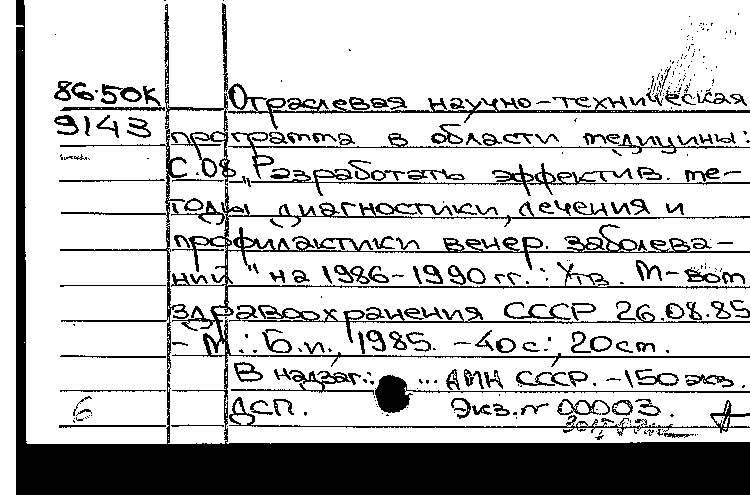 86-50К Отраслевая научно-техническая
9143 программа в области медицины:
С.08 „Разработать эффектив. ме-
тоды диагностики, лечения и
профилактики венер. заболева-
ний" на 1986-1990 гг.: Утв. М-вом
здравоохранения СССР 26.08.85
- М.: Б.и., 1985. - 40 с.; 20 см.
В надзаг.: ... АМН СССР. - 150 экз.
6 ДСП. Экз.№ 00003.